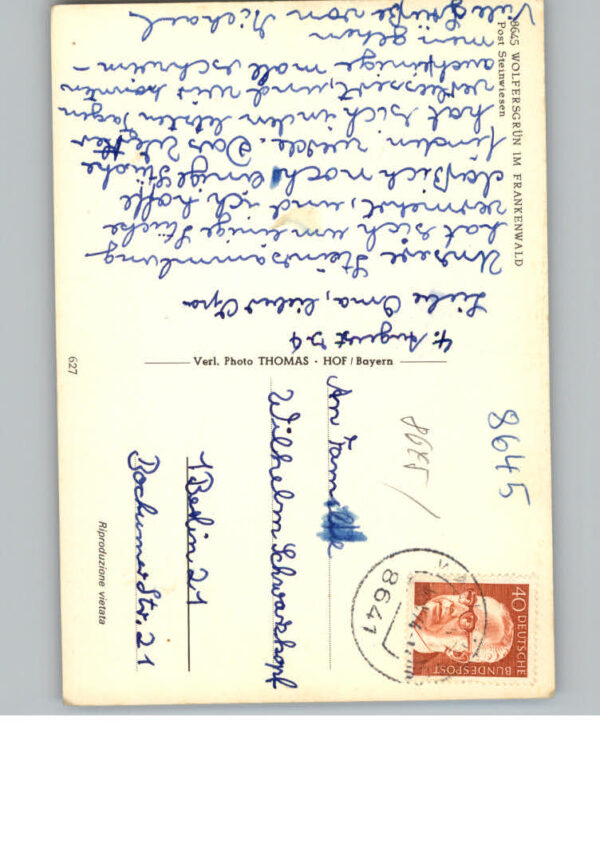 8645 WOLFERSGRÜN IM FRANKENWALD
Post Steinwiesen
4. August 74
Liebe Oma, lieber Opa
Unsere Steinsammlung
hat sich um einige Stücke
vermehrt, und ich hoffe
daß ich noch einige Stücke
finden werde. Das Wetter
hat sich in den letzten Tagen
verbessert, und wir konnten
auch einige male schwim-
men gehen
Viele Grüße von Michael
Verl. Photo THOMAS · HOF/Bayern
627
8645
8645/
40 DEUTSCHE
BUNDESPOST
8641
An Familie
Wilhelm Schwarzkopf
1 Berlin 21
Bochumer Str. 21
Riproduzione vietata